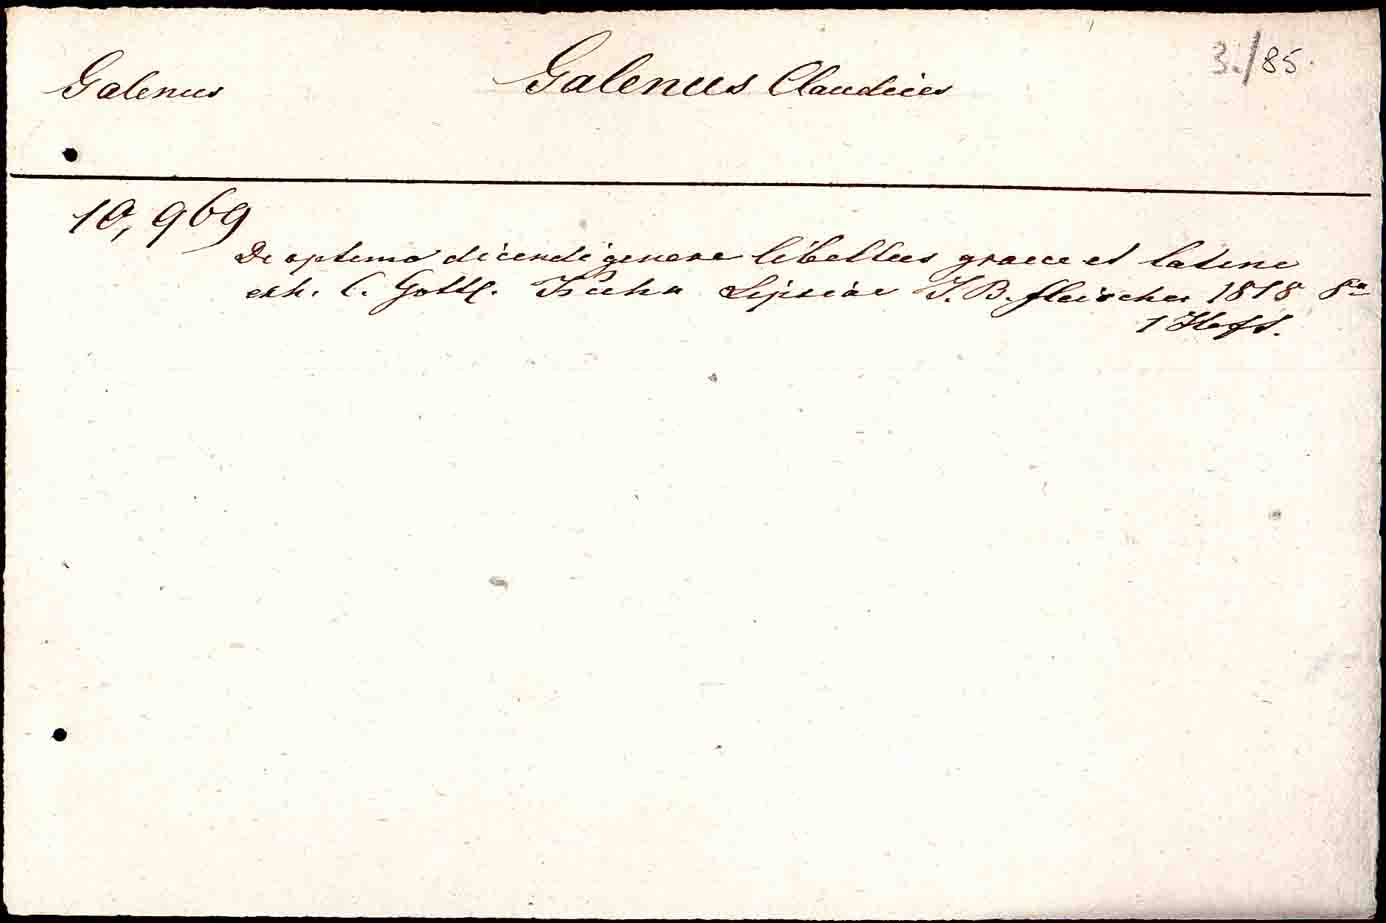 Galenus Galenus Claudius 3./85.
10,969
De optimo dicendi genere libellus graece et latine
exh. C. Gottl. Kuhn Lipsiae I. B. fleischer 1818 8°
1 Heft.